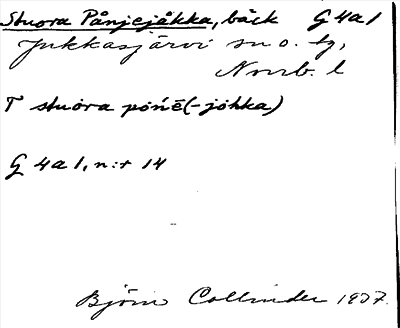 Stuora Pånjejåkka, bäck G 4a1
Jukkasjärvi sn o. tg,
Norrb. l
T stuora pońē(-jȯhka)
G 4a1, n:r 14
Björn Collinder 1937.